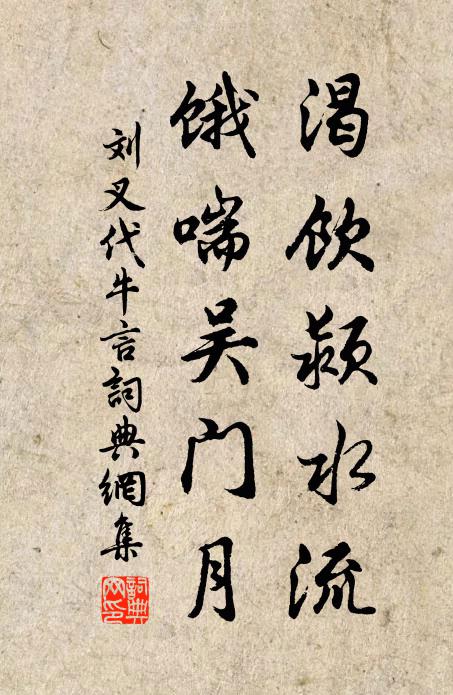 渴饮颍水流
饿喘吴门月
刘叉代牛言詞典網集
詞典网印